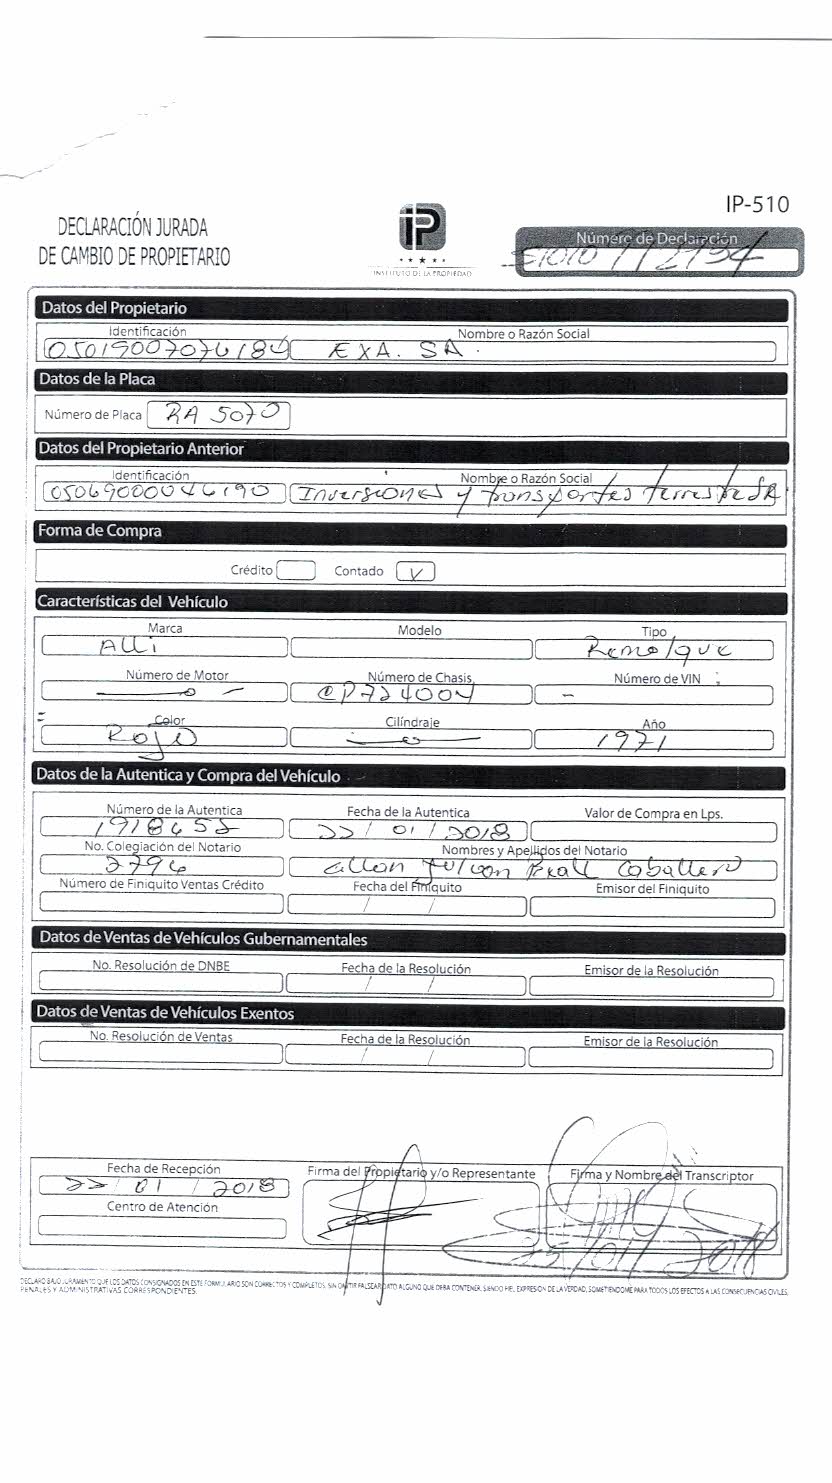 IP-510
DECLARACIÓN JURADA
DE CAMBIO DE PROPIETARIO
iP
INSTITUTO DE LA PROPIEDAD
Número de Declaración
Datos del Propietario
Identificación Nombre o Razón Social
EXA. SA.
Datos de la Placa
Número de Placa RA 5070
Datos del Propietario Anterior
Identificación Nombre o Razón Social
05069000046190 Inversiones y transportes terrestre SA
Forma de Compra
Crédito Contado V
Características del Vehículo
Marca Modelo Tipo
Alli Remolque
Número de Motor Número de Chasis Número de VIN
CP724004
Color Cilíndraje Año
Rojo 1971
Datos de la Autentica y Compra del Vehículo
Número de la Autentica Fecha de la Autentica Valor de Compra en Lps.
1918652 22/01/2018
No. Colegiación del Notario Nombres y Apellidos del Notario
2794 Caballero
Número de Finiquito Ventas Crédito Fecha del Finiquito Emisor del Finiquito
/ /
Datos de Ventas de Vehículos Gubernamentales
No. Resolución de DNBE Fecha de la Resolución Emisor de la Resolución
/ /
Datos de Ventas de Vehículos Exentos
No. Resolución de Ventas Fecha de la Resolución Emisor de la Resolución
/ /
Fecha de Recepción Firma del Propietario y/o Representante Firma y Nombre del Transcriptor
22/01/2018
Centro de Atención
25/01/2018
DECLARO BAJO JURAMENTO QUE LOS DATOS CONSIGNADOS EN ESTE FORMULARIO SON CORRECTOS Y COMPLETOS, SIN OMITIR FALSEAR DATO ALGUNO QUE DEBA CONTENER, SIENDO FIEL EXPRESION DE LA VERDAD, SOMETIENDOME PARA TODOS LOS EFECTOS A LAS CONSECUENCIAS CIVILES,
PENALES Y ADMINISTRATIVAS CORRESPONDIENTES.